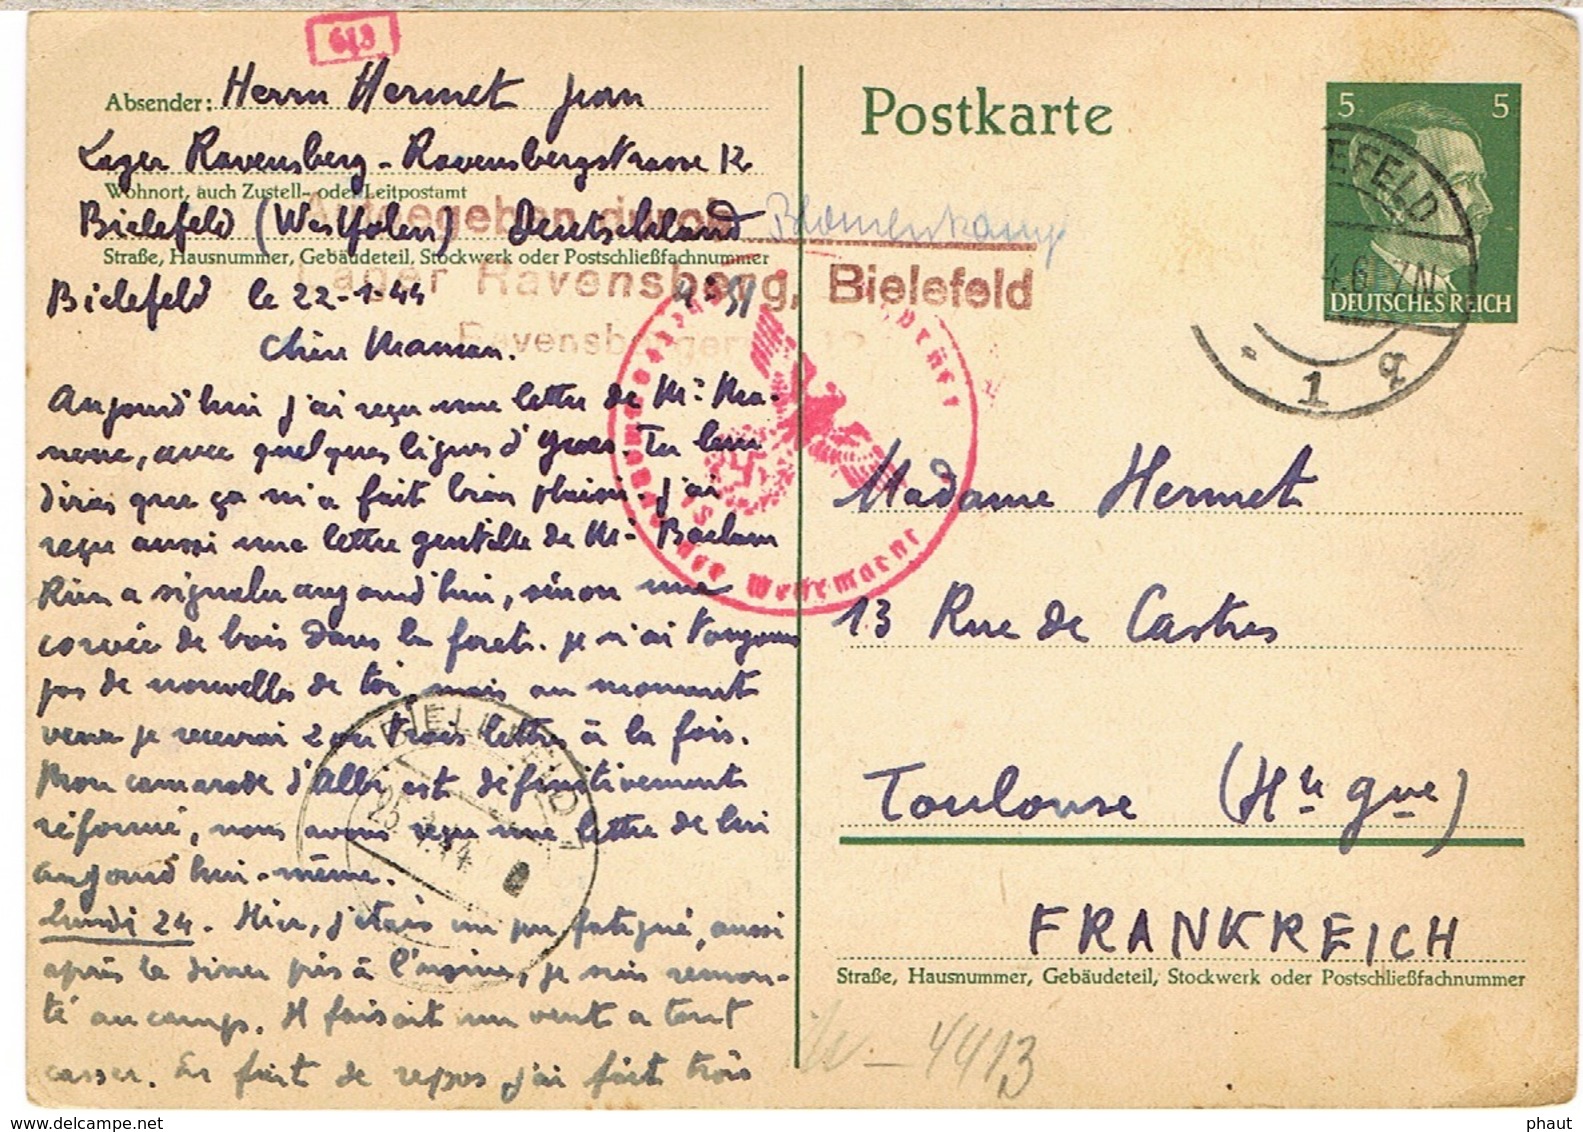 613
Absender: Herrn Hermet Jean
Lager Ravensberg - Ravensbergstrasse 12
Wohnort, auch Zustell- oder Leitpostamt
Bielefeld (Westfalen) Deutschland
Straße, Hausnummer, Gebäudeteil, Stockwerk oder Postschließfachnummer
durch
Lager Ravensberg, Bielefeld
Bielefeld le 22-1-44
Chère Maman.
Aujourd'hui j'ai reçu une lettre de
avec quelques lignes d'Yves. Tu leur
diras que ça m'a fait bien plaisir. J'ai
reçu aussi une lettre gentille de
Rien a signaler aujourd'hui, sinon une
corvée de bois dans la foret. je n'ai toujours
pas de nouvelles de toi, mais au moment
venu je recevrai 2 ou trois lettres à la fois.
Mon camarade d'Albi est définitivement
réformé, nous avons reçu une lettre de lui
aujourd'hui-même.
Lundi 24. Hier, j'étais un peu fatigué, aussi
après le diner pris à l'usine, je suis remon-
té au camp. Il faisait un vent a tout
casser. En fait de repos j'ai fait trois
Postkarte
5 5
DEUTSCHES REICH
BIELEFELD
1 q
der Wehrmacht
BIELEFELD
Madame Hermet
13 Rue de Castres
Toulouse (Hte Gne)
FRANKREICH
Straße, Hausnummer, Gebäudeteil, Stockwerk oder Postschließfachnummer
4413
www.delcampe.net
phaut